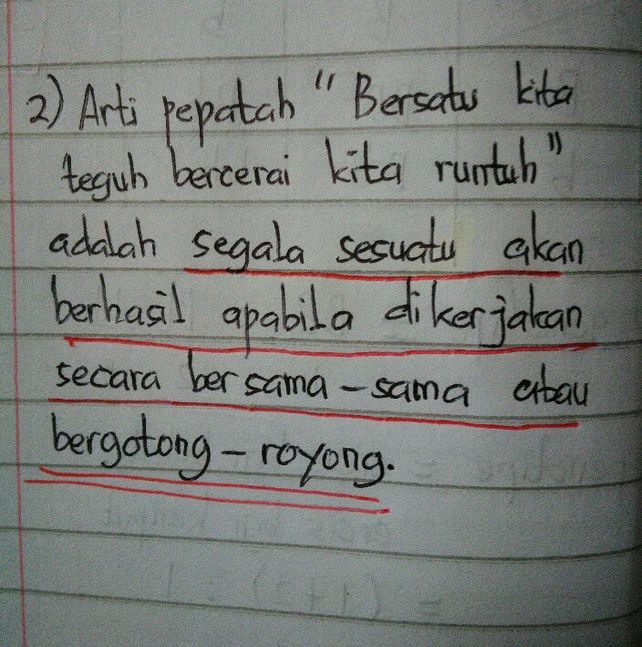 2) Arti pepatah "Bersatu kita
teguh bercerai kita runtuh"
adalah segala sesuatu akan
berhasil apabila dikerjakan
secara bersama-sama atau
bergotong-royong.